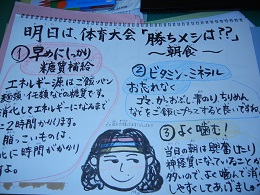 明日は、体育大会「勝ちメシは??」
～朝食～
①早めにしっかり
糖質補給
エネルギー源はご飯・パン
麺類・イモ類などの糖質です。
消化してエネルギーになるまで
に2時間かかります。
脂っこいものは、
に時間がかかり
すよ。
②ビタミン、ミネラル
おたれなく
ゴマ、かつおぶし、青のり、ちりめん
などをご飯にプラスすると良いですね。
③よく噛む!
当日の朝は興奮したり
神経質になっていることが
多いので、よく噛んで消
しやすくしてあげましょ